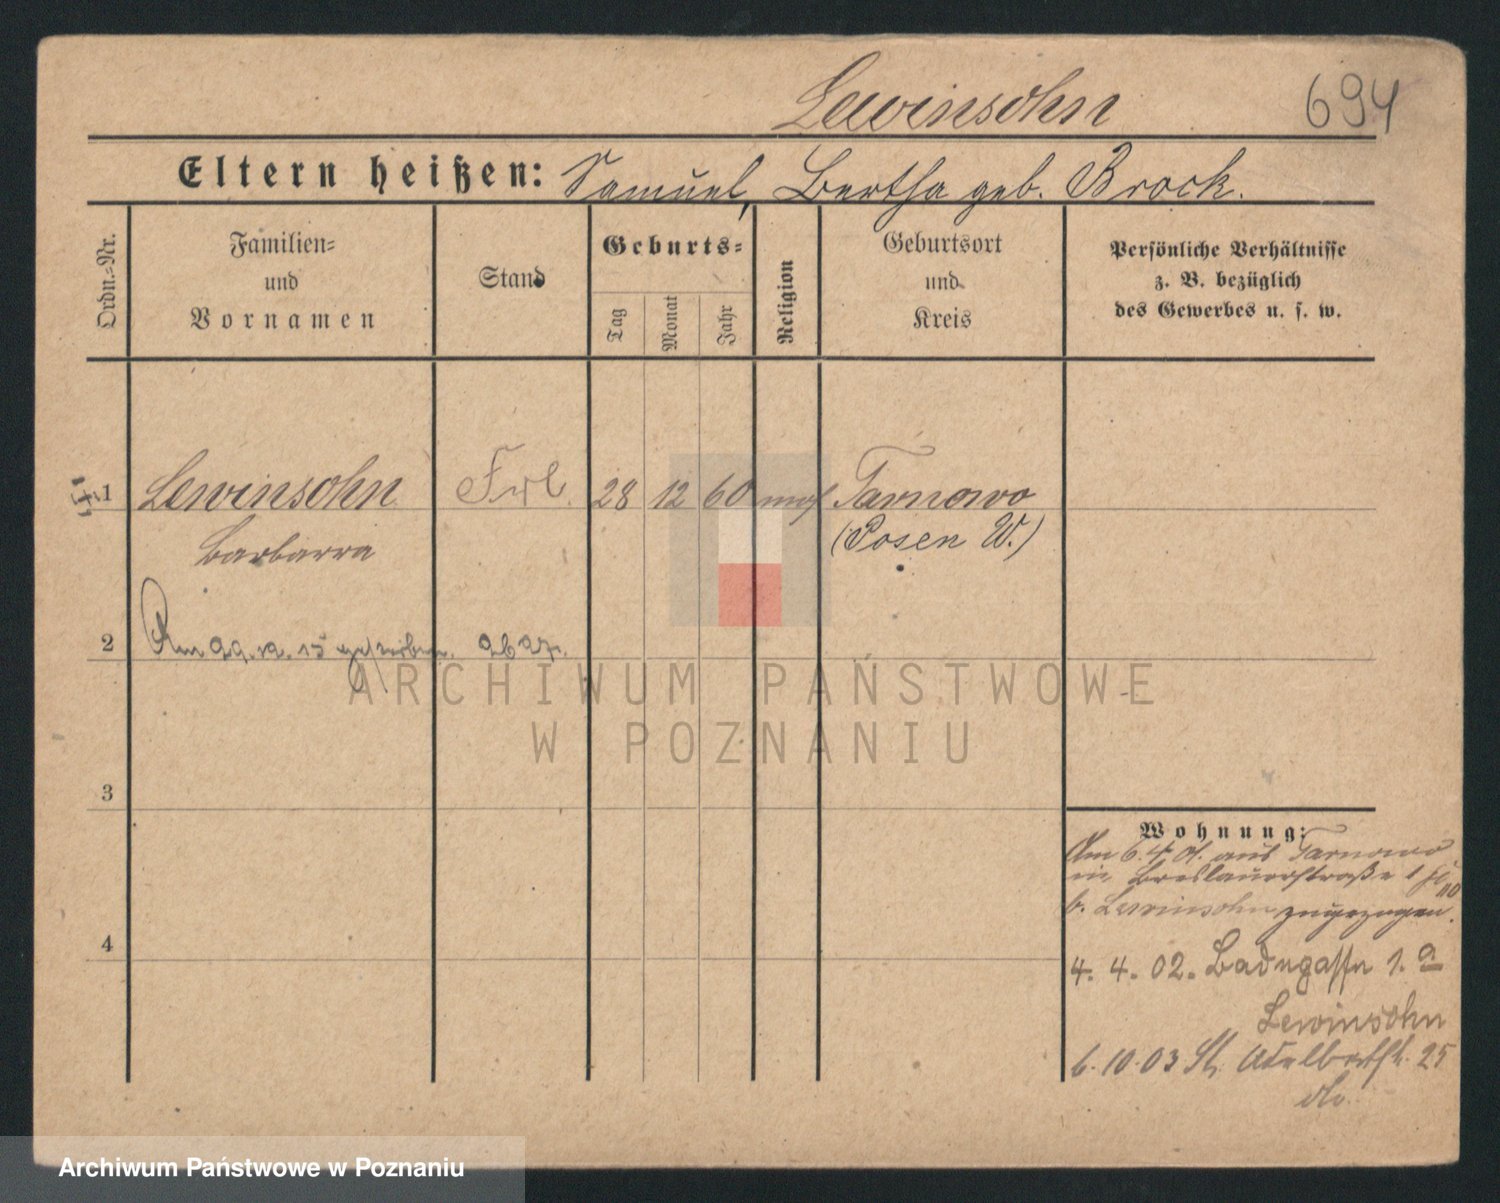 Lewinsohn 694
Eltern heißen: Samuel, Bertha geb. Brock.
Ordn.=Nr.
Familien=
und
Vornamen
Stand
Geburts=
Tag
Monat
Jahr
Religion
Geburtsort
und
Kreis
Persönliche Verhältnisse
z. B. bezüglich
des Gewerbes u. s. w.
1 Lewinsohn Frl. 28 12 60 mos Tarnowo
Barbarra (Posen W.)
2 Am 29.12.15 gestorben.
3
4
Wohnung:
Am 6.4.01. aus Tarnowo
in Breslauerstraße 1
b. Lewinsohn zugezogen.
4. 4. 02. Badegasse 1.a
Lewinsohn
6.10.03 St. Adelbertstr. 25
do.
ARCHIWUM PAŃSTWOWE
W POZNANIU
Archiwum Państwowe w Poznaniu